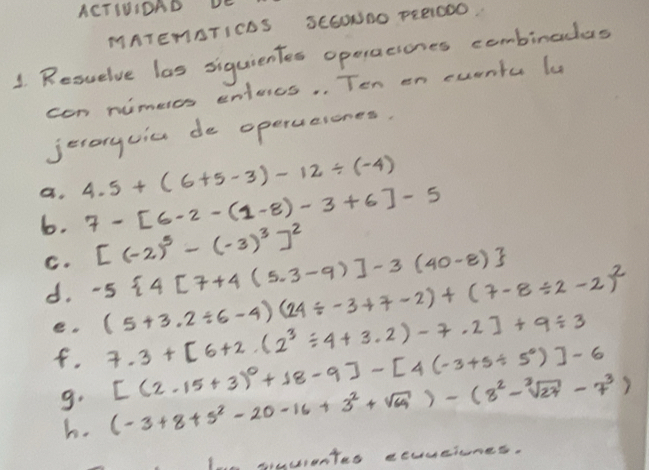 ACTIVIDAD DE
MATEMATICAS SEGUNDO PERIODO.
1. Resuelve las siguientes operaciones combinadas
con números enteros.. Ten en cuenta la
jerarquia de operaciones.
a. 4.5 + (6+5-3) - 12 ÷ (-4)
b. 7 - [6-2-(1-8)-3+6] - 5
c. [(-2)⁵ - (-3)³]²
d. -5 {4 [7+4 (5.3-9)] - 3 (40-8)}
e. (5+3.2÷6-4)(24÷-3+7-2) + (7-8÷2-2)²
f. 7.3 + [6+2.(2³÷4+3.2)-7.2] + 9÷3
g. [(2-15+3)⁰+18-9] - [4(-3+5÷5⁰)] - 6
h. (-3+8+5²-20-16+3²+√64) - (8²-³√27-7³)
siguientes ecuaciones.